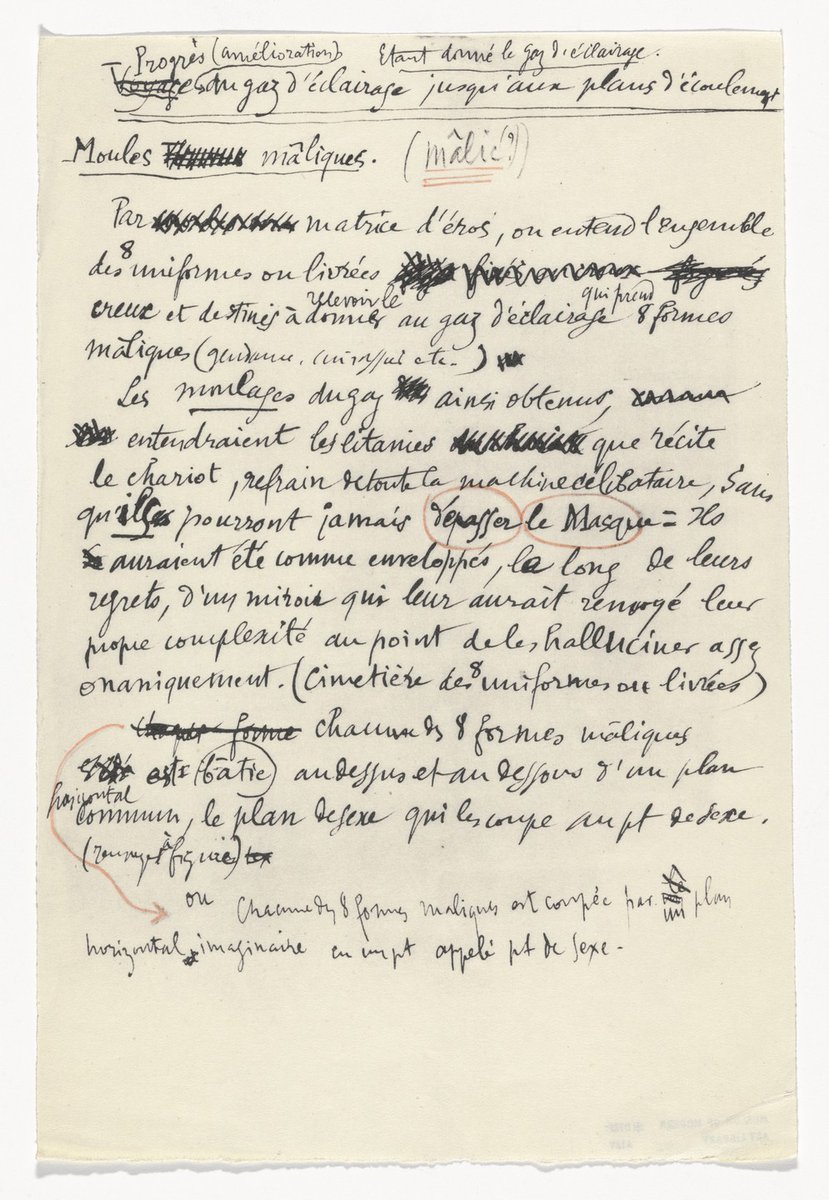 Progrès (amélioration) Etant donné le gaz d'éclairage.
Voyages du gaz d'éclairage jusqu'aux plans d'écoulement
Moules mâliques. (mâlic?)
Par matrice d'éros, on entend l'ensemble
des 8 uniformes ou livrées
creux et destinés à donner recevoir le au gaz d'éclairage qui prend 8 formes
mâliques (gendarme, cuirassier etc.)
Les moulages du gaz ainsi obtenus,
entendraient les litanies que récite
le chariot, refrain de toute la machine célibataire, Sans
qu'ils pourront jamais dépasser le Masque = Ils
auraient été comme enveloppés, le long de leurs
regrets, d'un miroir qui leur aurait renvoyé leur
propre complexité au point de les halluciner assez
onaniquement. (Cimetière des 8 uniformes ou livrées)
forme chacune des 8 formes mâliques
est bâtie au dessus et au dessous d'un plan
horizontal
commun, le plan de sexe qui les coupe au pt de sexe.
(renvoyer à figure)
ou Chacune des 8 formes maliques est coupée par un plan
horizontal imaginaire en un pt appelé pt de sexe.